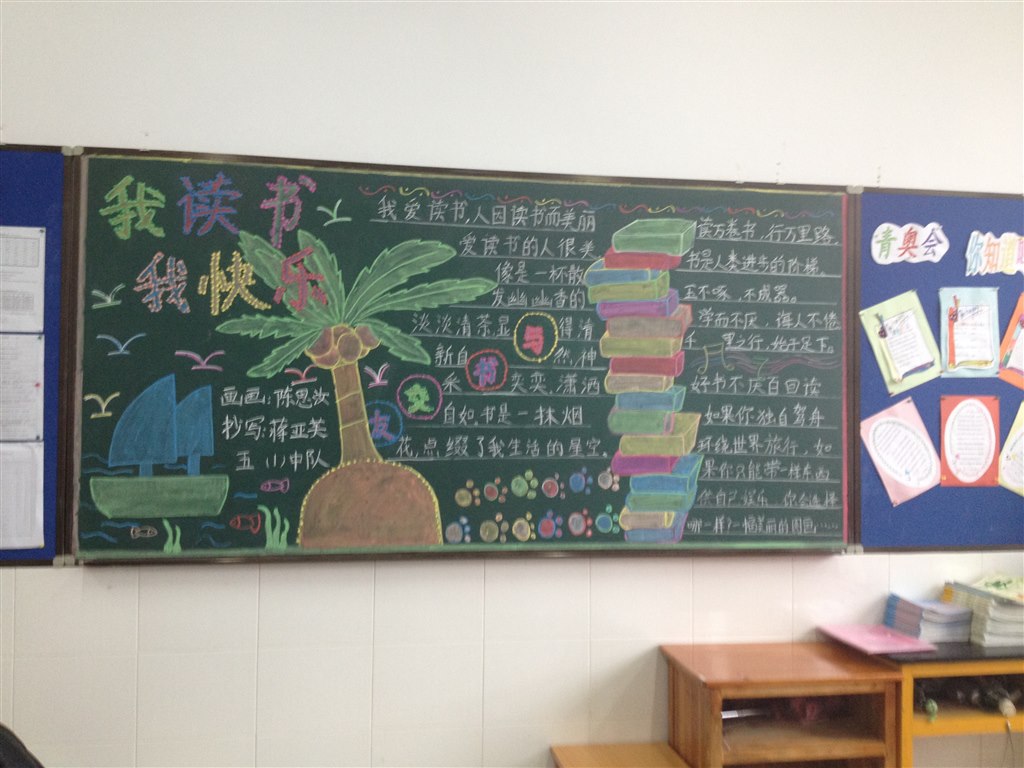 我读书
我快乐
画画:陈思汝
抄写:蒋亚芙
五(1)中队
我爱读书,人因读书而美丽
爱读书的人很美
像是一杯散
发幽幽香的
淡淡清茶显得清
新自然,神
采奕奕,潇洒
自如。书是一抹烟
花,点缀了我生活的星空。
与书交友
读万卷书,行万里路。
书是人类进步的阶梯。
玉不啄,不成器。
学而不厌,诲人不倦
千里之行,始于足下。
好书不厌百回读
如果你独自驾舟
环绕世界旅行,如
果你只能带一样东西
供自己娱乐,你会选择
哪一样?一幅美丽的图画……
青奥会
你知道